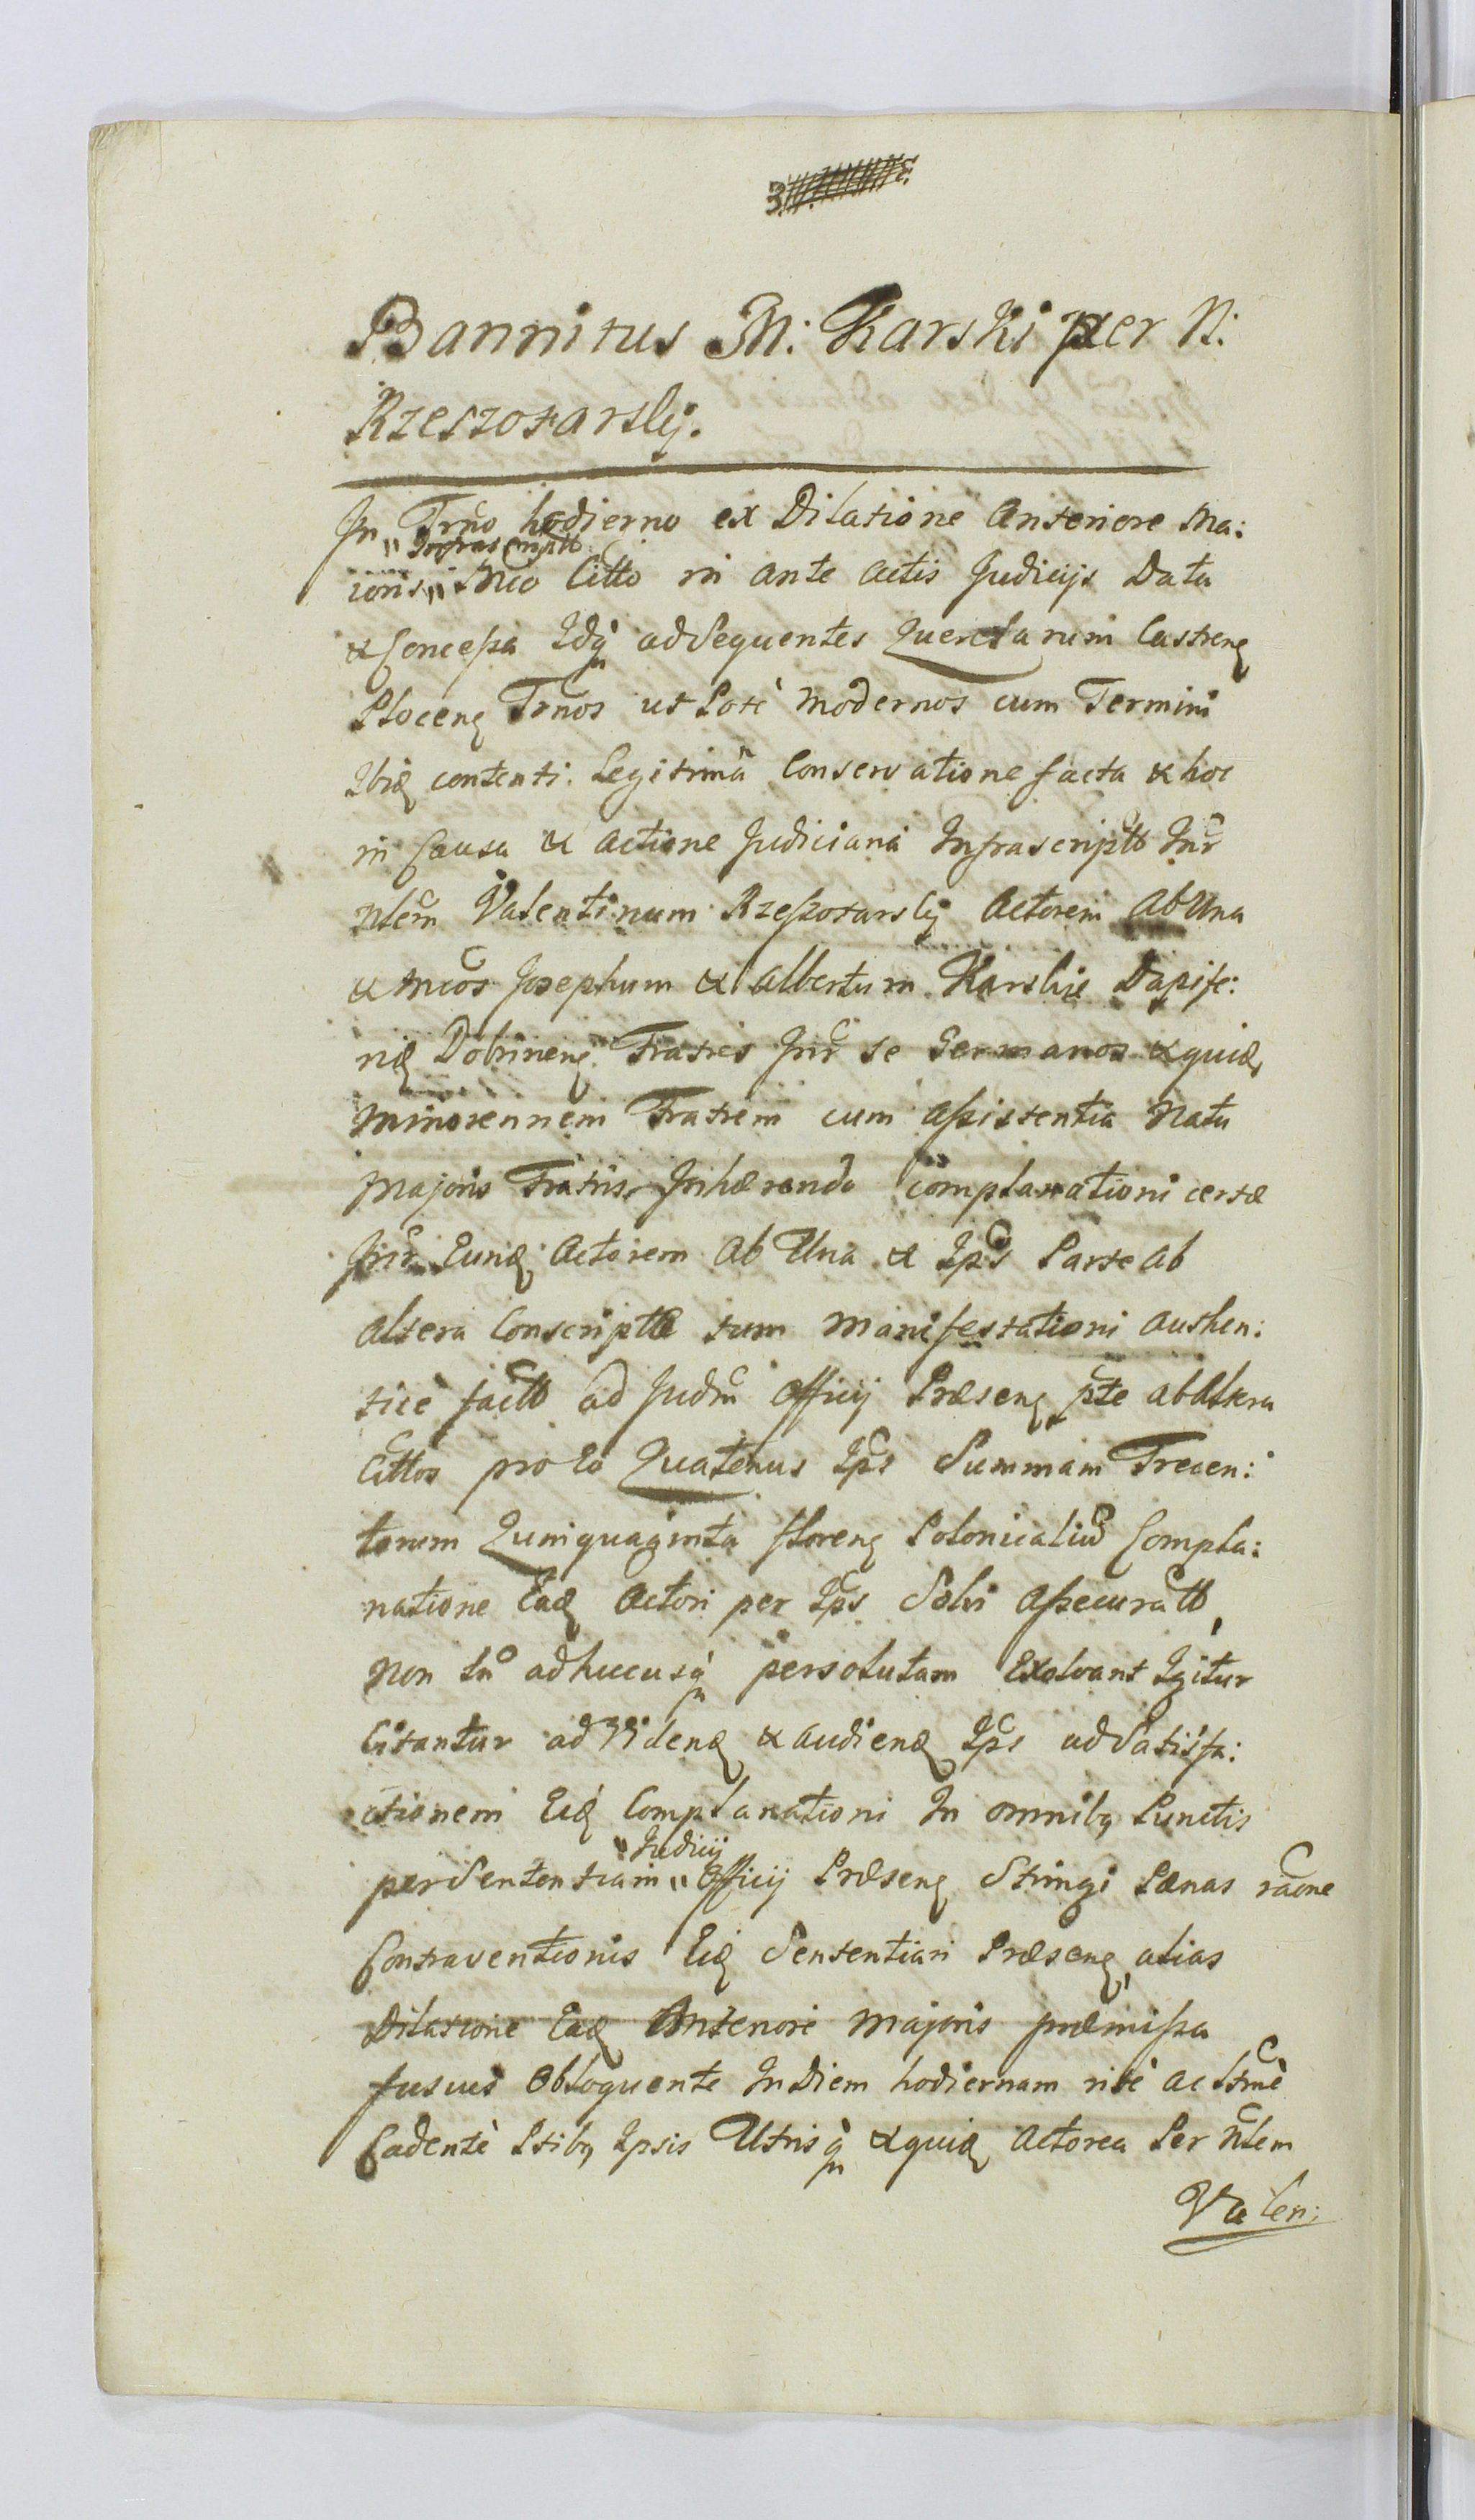 Bannitus M: Karski per N:
Rzeszotarsky.
In Trno hodierno ex Dilatione Anteriore Ma:
"Infrascriptto
ioris " Mco Citto in ante actis Judicijs Data
& Concessa Idq ad Sequentes Querelarum Castren
Plocen Trnos ut Pote modernos cum Termini
Ibid contenti Legitima Conservatione facta & hoc
in Causa & Actione Judiciaria Infrascriptto Intr
Nlem Valentinum Rzeszotarsky Actorem ab Una
& Mcos Josephum & Albertum Karskie Dapife:
rid Dobrinen Fratres Intr se Germanos & quid
Minorennem Fratrem cum Assistentia Natu
Majoris Fratris Inhærendo Complanationi certæ
Intr Eund Actorem ab Una & Ips Parte ab
altera Conscriptæ tum Manifestationi authen:
ticè factto ad Judm Officij Præsen pte ab Altera
Cittos pro Eo Quatenus Ips Summam Trecen:
torum Quinquaginta floren Polonicaliu Compla:
natione Ead Actori per Ips Solvi Assecuratto,
Non tn adhucusq persolutam Exolvant Igitur
Citantur ad Vidend & audiend Ips ad Satisfa:
ctionem Eid Complanationi In omnibq Punctis
"Judicij
per Sententiam " Officij Præsen Stringi Pænas raone
Contraventionis Eid Sententiari Præsen, alias
Dilatione Ead Anteriori Majoris præmissa
fusius Obloquente In Diem hodiernam ritè ac Ltmè
Cadente Ptibq Ipsis Utrisq & quid Actorea Per Nlem
Valen: